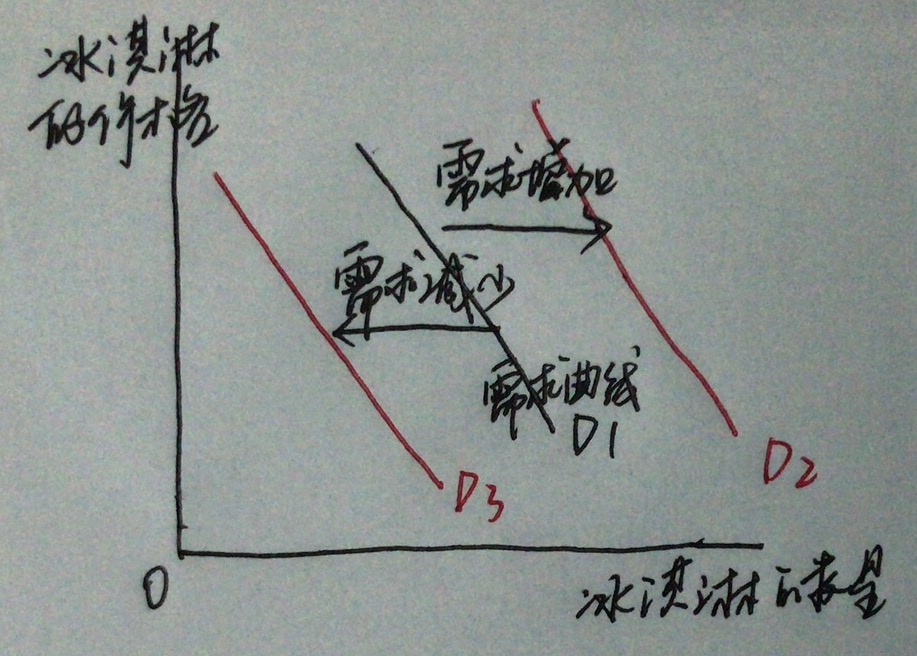 冰淇淋
的价格
需求增加
需求减少
需求曲线
D1
D2
D3
0
冰淇淋的数量